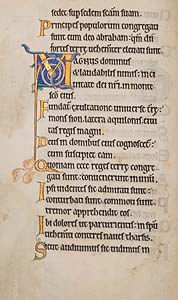 sedet sup sedem scām suam.
Principes populorum congregati
sunt cum deo abraham: qm̄ dii
fortes terre uehementer eleuati sunt.
Magnus dominus
et laudabilis nimis: in ci
uitate dei nr̄i in monte
sc̄o eius.
Fundat exultatione uniuerse t̄re:
mons syon latera aquilonis. ciui
tas regis magni.
Deus in domibus eius cognoscet̄:
cum suscipiet eam.
Quoniam ecce reges terre congre
gati sunt: conuenerunt in unum.
Ipsi uidentes sic admirati sunt:
conturbati sunt. commoti sunt
tremor apprehendit eos.
Ibi dolores ut parturientis: in spu
uehementi conteres naues tharsis.
Sicut audiuimus sic uidimus in